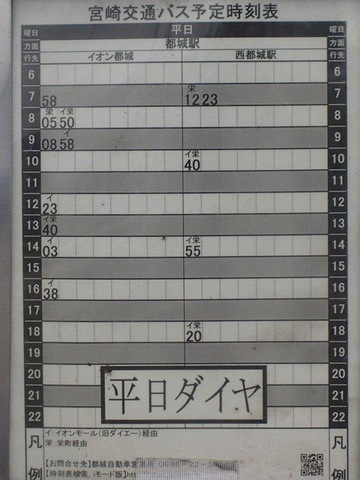 宮崎交通バス予定時刻表
曜日 平日 曜日
方面 都城駅 方面
行先 イオン都城 西都城駅 行先
6 6
栄
7 58 12 23 7
栄 イ栄
8 05 50 8
イ
9 08 58 9
イ栄
10 40 10
11 11
イ
12 23 12
イ栄
13 40 13
イ イ栄
14 03 55 14
15 15
イ
16 38 16
17 17
イ栄
18 20 18
19 19
20 20
21 21
22 22
平日ダイヤ
凡例 イ:イオンモール(旧ダイエー)経由 凡例
栄:栄町経由
【お問合せ先】都城自動車営業所
【時刻表検索 iモード版】